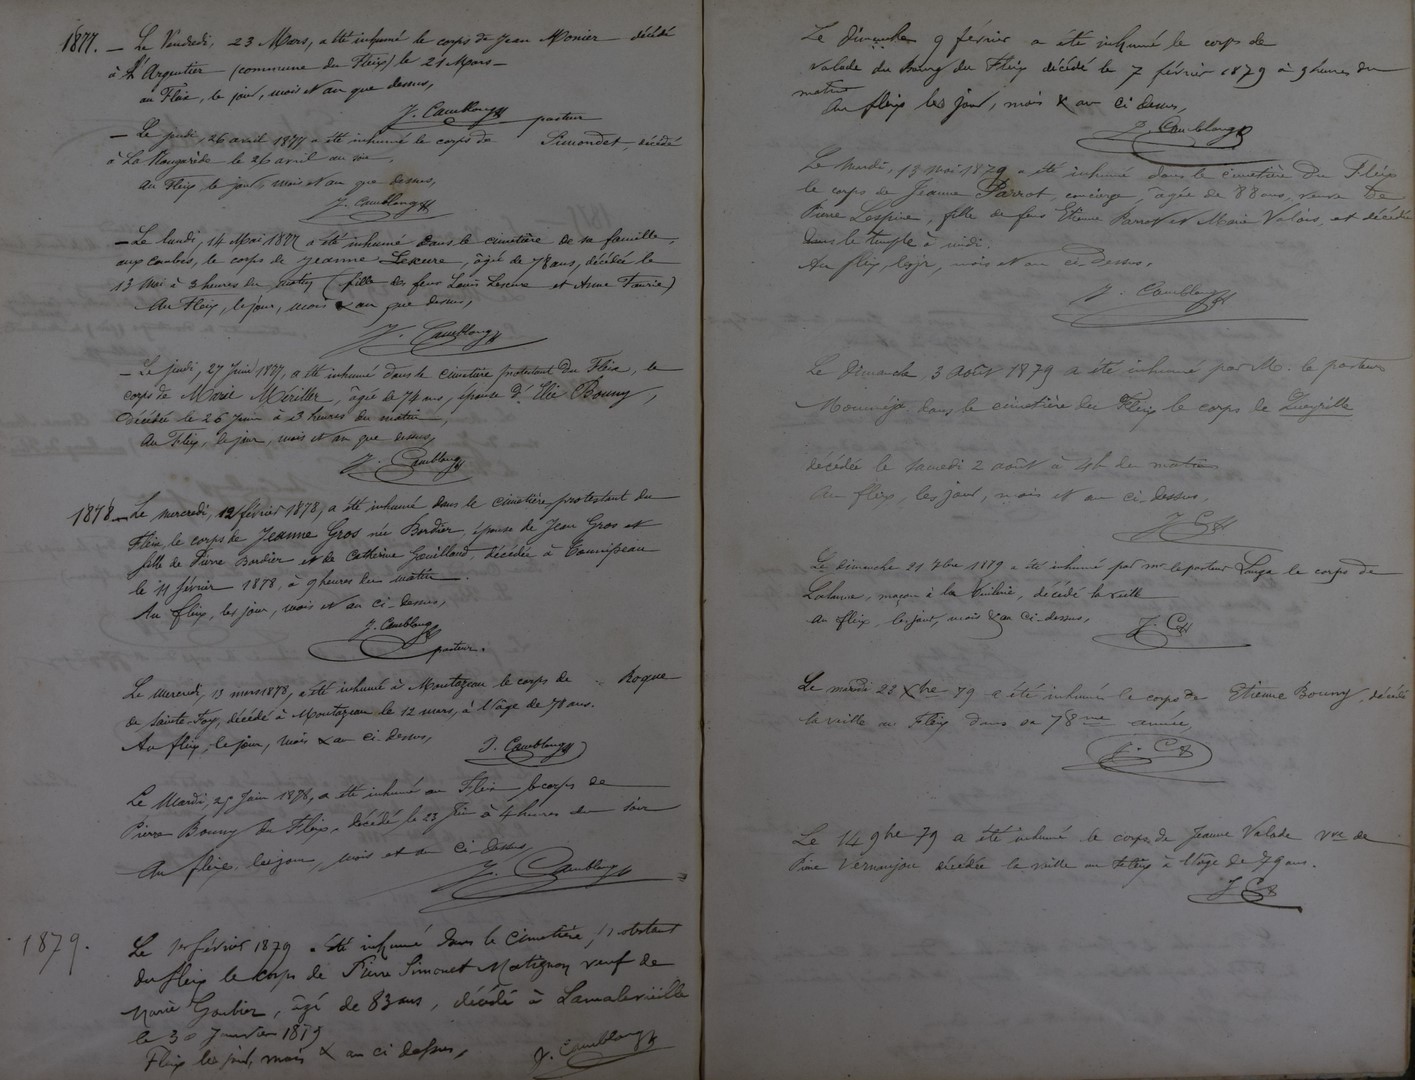 1877. — Le Vendredi, 23 Mars, a été inhumé le corps de Jean Monier décédé
à l'Argentier (commune du Fleix) le 21 Mars —
au Fleix, le jour, mois et an que dessus,
J. Camblong
pasteur
— Le jeudi, 26 avril 1877 a été inhumé le corps de Simondet, décédé
à La le 26 avril au soir.
Au Fleix, le jour, mois et an que dessus,
J. Camblong
— Le lundi, 14 Mai 1877 a été inhumé dans le cimetière de sa famille,
aux combes, le corps de Jeanne Lescure, âgée de 78 ans, décédée le
13 Mai à 3 heures du matin (fille des feus Louis Lescure et Anne Faurie)
Au Fleix, le jour, mois & an que dessus,
J. Camblong
— Le jeudi, 27 Juin 1877, a été inhumé dans le cimetière protestant du Fleix, le
corps de Marie Mériller, âgée de 74 ans, épouse d'Elie Bouny,
décédée le 26 Juin à 3 heures du matin,
Au Fleix, le jour, mois et an que dessus,
J. Camblong
1878. — Le mercredi, 12 février 1878, a été inhumé dans le cimetière protestant du
Fleix, le corps de Jeanne Gros née Bordier, épouse de Jean Gros et
fille de Pierre Bordier et de Catherine Gouilland, décédée à
le 11 février 1878, à 9 heures du matin.
Au fleix, les jour, mois et an ci-dessus,
J. Camblong
pasteur.
Le Mercredi, 13 mars 1878, a été inhumé à Montazeau le corps de Roque
de Sainte-Foy, décédé à Montazeau le 12 mars, à l'âge de 78 ans.
Au fleix, le jour, mois & an ci-dessus,
J. Camblong
Le Mardi, 25 Juin 1878, a été inhumé au Fleix le corps de
Pierre Bouny du Fleix, décédé le 23 Juin à 4 heures du soir
Au fleix, les jour, mois et an ci-dessus,
J. Camblong
1879. Le 1er février 1879 a été inhumé dans le cimetière protestant
du fleix le corps de Pierre Simonet Matignon veuf de
Marie Goubier, âgé de 83 ans, décédé à Lamalevieille
le 30 Janvier 1879
Fleix les jour, mois & an ci dessus,
J. Camblong
Le Dimanche 9 février a été inhumé le corps de
Valade du bourg du Fleix décédé le 7 février 1879 à 9 heures du
matin
Au fleix les jour, mois & an ci dessus,
J. Camblong
Le Mardi, 13 mai 1879 a été inhumé dans le cimetière du Fleix
le corps de Jeanne Parrot, concierge, âgée de 88 ans, veuve de
Pierre Lespine, fille de feus Etienne Parrot et Marie Valois, et décédée
dans le temple à midi.
Au fleix, les jr, mois et an ci-dessus,
J. Camblong
Le Dimanche, 3 Août 1879 a été inhumé par M. le pasteur
Mouméja, dans le cimetière du Fleix le corps de
décédée le samedi 2 août à 4h du matin
Au fleix, les jour, mois et an ci-dessus.
J C
Le dimanche 21 7bre 1879 a été inhumé par mr le pasteur le corps de
Lalanne, maçon à la Tuilerie, décédé la veille
Au fleix, les jour, mois & an ci-dessus,
J. C
Le mardi 22 Xbre 79 a été inhumé le corps de Etienne Bouny, décédé
la veille au Fleix dans sa 78me année
J. C
Le 14 9bre 79 a été inhumé le corps de Jeanne Valade vve de
Pierre décédée la veille au Fleix à l'âge de 79 ans.
J C